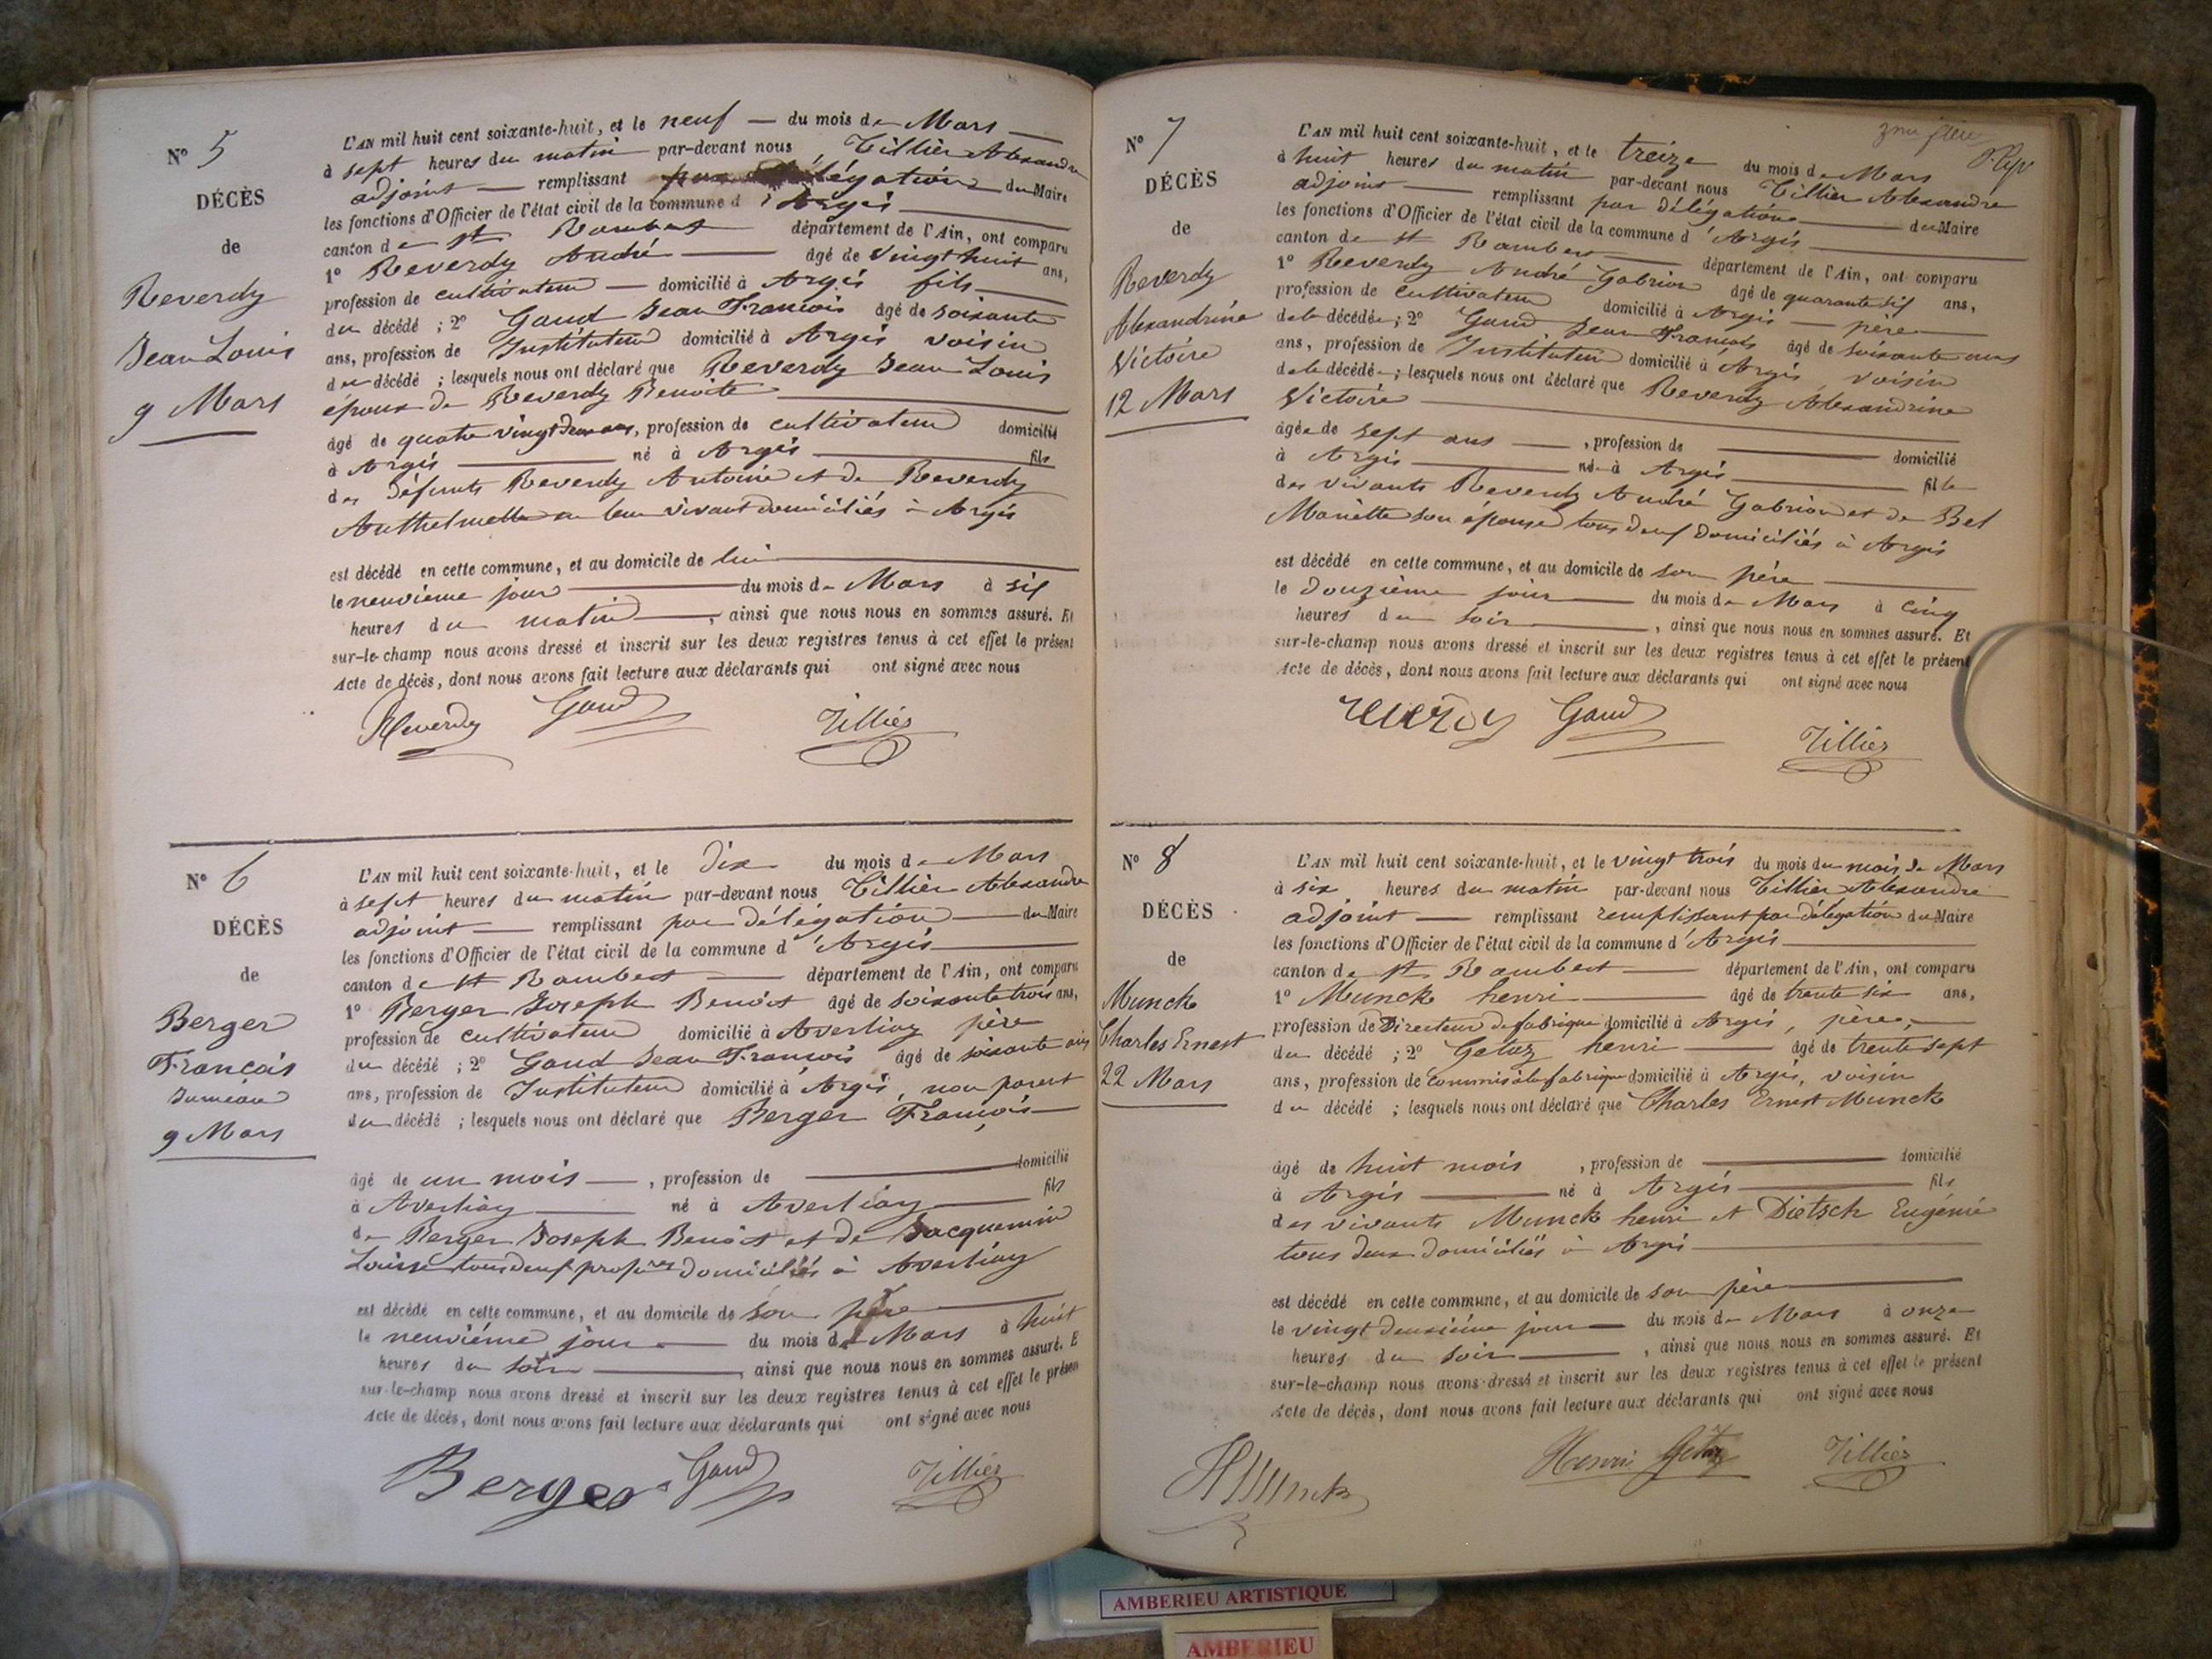 N° 5
DÉCÈS
de
Reverdy
Jean Louis
9 Mars
L'AN mil huit cent soixante-huit, et le neuf — du mois de Mars
à sept heures du matin par-devant nous Tillier Alexandre
adjoint — remplissant par délégation du Maire
les fonctions d'Officier de l'état civil de la commune d'Argis
canton de St Rambert département de l'Ain, ont comparu
1° Reverdy André — âgé de vingt huit ans,
profession de cultivateur — domicilié à Argis fils
du décédé ; 2° Gaud Jean François âgé de soixante
ans, profession de Instituteur domicilié à Argis voisin
du décédé ; lesquels nous ont déclaré que Reverdy Jean Louis
époux de Reverdy Benoite
âgé de quatre vingt deux ans, profession de cultivateur domicilié
à Argis né à Argis fils
des défunts Reverdy Antoine et de Reverdy
Anthelmette en leur vivant domiciliés à Argis
est décédé en cette commune, et au domicile de lui
le neuvième jour du mois de Mars à six
heures du matin, ainsi que nous nous en sommes assuré. Et
sur-le-champ nous avons dressé et inscrit sur les deux registres tenus à cet effet le présent
Acte de décès, dont nous avons fait lecture aux déclarants qui ont signé avec nous
Reverdy Gaud Tillier
N° 6
DÉCÈS
de
Berger
François
Jumeau
9 Mars
L'AN mil huit cent soixante-huit, et le dix du mois de Mars
à sept heures du matin par-devant nous Tillier Alexandre
adjoint — remplissant par délégation — du Maire
les fonctions d'Officier de l'état civil de la commune d'Argis
canton de St Rambert — département de l'Ain, ont comparu
1° Berger Joseph Benoit âgé de soixante trois ans,
profession de cultivateur domicilié à Averliaz père
du décédé ; 2° Gaud Jean François âgé de soixante ans
ans, profession de Instituteur domicilié à Argis, non parent
du décédé ; lesquels nous ont déclaré que Berger François
âgé de un mois —, profession de — domicilié
à Averliaz né à Averliaz fils
de Berger Joseph Benoit et de Jacquemin
Louise tous deux domiciliés à Averliaz
est décédé en cette commune, et au domicile de son père
le neuvième jour — du mois de Mars à huit
heures du soir, ainsi que nous nous en sommes assuré. E
sur-le-champ nous avons dressé et inscrit sur les deux registres tenus à cet effet le présen
Acte de décès, dont nous avons fait lecture aux déclarants qui ont signé avec nous
Berger Gaud Tillier
N° 7
DÉCÈS
de
Reverdy
Alexandrine
Victoire
12 Mars
L'AN mil huit cent soixante-huit, et le treize du mois de Mars
à huit heures du matin par-devant nous Tillier Alexandre
adjoint — remplissant par délégation du Maire
les fonctions d'Officier de l'état civil de la commune d'Argis
canton de St Rambert — département de l'Ain, ont comparu
1° Reverdy André Gabrion âgé de quarante six ans,
profession de cultivateur domicilié à Argis — père
de la décédée ; 2° Gaud Jean François âgé de soixante ans
ans, profession de Instituteur domicilié à Argis voisin
de la décédée ; lesquels nous ont déclaré que Reverdy Alexandrine
Victoire
âgée de sept ans —, profession de — domicilié
à Argis née à Argis fille
des vivants Reverdy André Gabrion et de Bel
Mariette son épouse tous deux domiciliés à Argis
est décédé en cette commune, et au domicile de son père
le douzième jour — du mois de Mars à cinq
heures du soir, ainsi que nous nous en sommes assuré. Et
sur-le-champ nous avons dressé et inscrit sur les deux registres tenus à cet effet le présent
Acte de décès, dont nous avons fait lecture aux déclarants qui ont signé avec nous
reverdy Gaud Tillier
N° 8
DÉCÈS
de
Munck
Charles Ernest
22 Mars
L'AN mil huit cent soixante-huit, et le vingt trois du mois du mois de Mars
à six heures du matin par-devant nous Tillier Alexandre
adjoint — remplissant remplissant par délégation du Maire
les fonctions d'Officier de l'état civil de la commune d'Argis
canton de St Rambert — département de l'Ain, ont comparu
1° Munck henri — âgé de trente six ans,
profession de Directeur de fabrique domicilié à Argis, père,
du décédé ; 2° Getaz henri — âgé de trente sept
ans, profession de commis à la fabrique domicilié à Argis, voisin
du décédé ; lesquels nous ont déclaré que Charles Ernest Munck
âgé de huit mois, profession de — domicilié
à Argis né à Argis fils
des vivants Munck henri et Dietsch Eugénie
tous deux domiciliés à Argis
est décédé en cette commune, et au domicile de son père
le vingt deuxième jour — du mois de Mars à onze
heures du soir, ainsi que nous nous en sommes assuré. Et
sur-le-champ nous avons dressé et inscrit sur les deux registres tenus à cet effet le présent
Acte de décès, dont nous avons fait lecture aux déclarants qui ont signé avec nous
HMunck Henri Getaz Tillier
AMBERIEU ARTISTIQUE
AMBERIEU